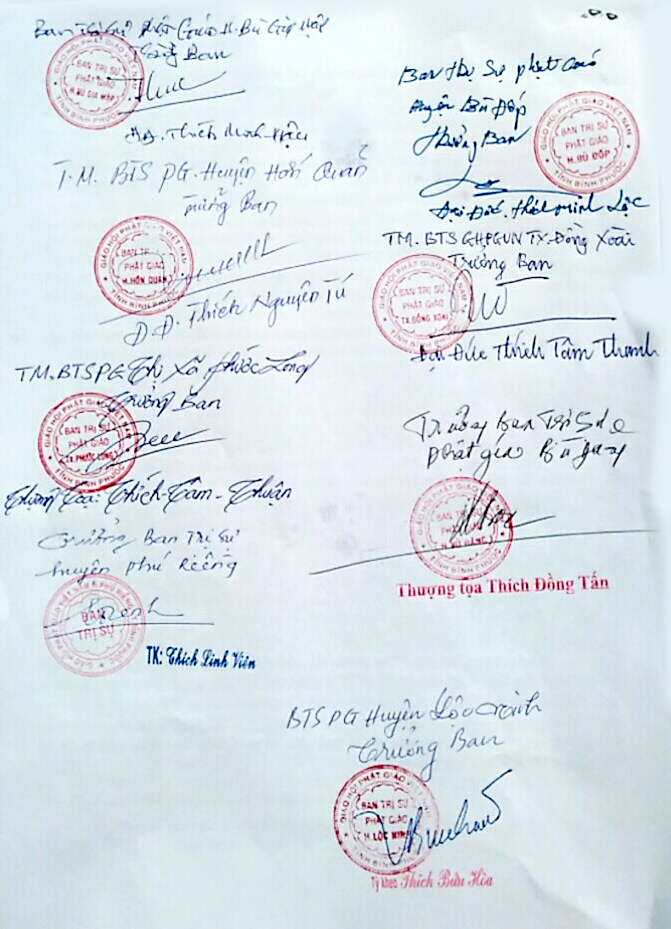 Ban Trị Sự Phật Giáo H. Bù Gia Mập
Trưởng Ban
GIÁO HỘI PHẬT GIÁO VIỆT NAM
BAN TRỊ SỰ
PHẬT GIÁO
H. BÙ GIA MẬP
TỈNH BÌNH PHƯỚC
ĐĐ. Thích Minh
T.M. BTS PG. Huyện Hớn Quản
Trưởng Ban
GIÁO HỘI PHẬT GIÁO VIỆT NAM
BAN TRỊ
PHẬT GIÁO
H. HỚN QUẢN
TỈNH BÌNH PHƯỚC
Đ.Đ. Thích Nguyên Tú
TM. BTSPG Thị Xã Phước Long
Trưởng Ban
GIÁO HỘI PHẬT GIÁO VIỆT NAM
BAN TRỊ SỰ
PHẬT GIÁO
TX. PHƯỚC LONG
TỈNH BÌNH PHƯỚC
Thượng Tọa: Thích - Tâm - Thuận
Trưởng Ban Trị Sự
huyện Phú Riềng
BAN
TRỊ SỰ
TK: Thích Linh Viên
Ban Trị Sự Phật Giáo
Huyện Bù Đốp
Trưởng Ban
GIÁO HỘI PHẬT GIÁO VIỆT NAM
BAN TRỊ SỰ
PHẬT GIÁO
H. BÙ ĐỐP
TỈNH BÌNH PHƯỚC
Đại Đức. Thích Minh Lộc
TM. BTS GHPGVN TX. Đồng Xoài
Trưởng Ban
GIÁO HỘI PHẬT GIÁO VIỆT NAM
BAN TRỊ SỰ
PHẬT GIÁO
TX. ĐỒNG XOÀI
TỈNH BÌNH PHƯỚC
Đại Đức Thích Tâm Thanh
Trưởng Ban Trị Sự
Phật giáo Bù Đăng
GIÁO HỘI PHẬT GIÁO VIỆT NAM
BAN TRỊ SỰ
PHẬT GIÁO
H. BÙ ĐĂNG
TỈNH BÌNH PHƯỚC
Thượng tọa Thích Đồng Tấn
BTSPG Huyện Lộc Ninh
Trưởng Ban
GIÁO HỘI PHẬT GIÁO VIỆT NAM
BAN TRỊ SỰ
PHẬT GIÁO
H. LỘC NINH
TỈNH BÌNH PHƯỚC
Tỳ kheo Thích Bửu Hòa